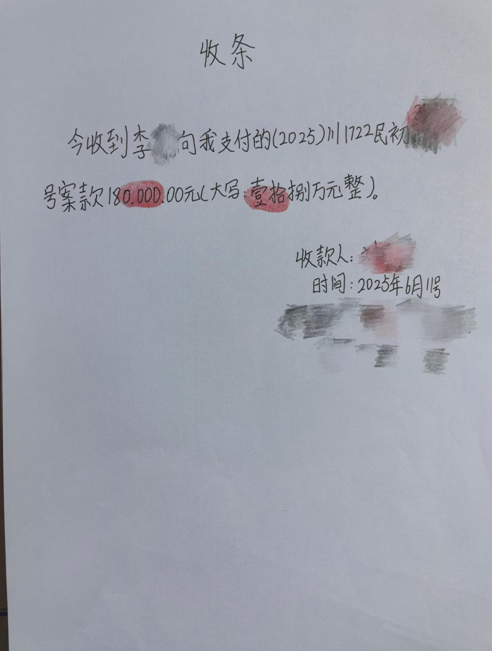 收条
今收到李 向我支付的(2025)川1722民初
号案款180.000.00元(大写:壹拾捌万元整)。
收款人:
时间:2025年6月11号